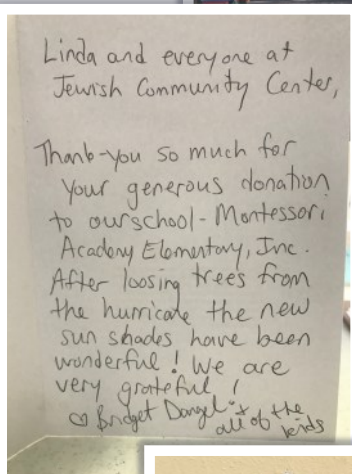 Linda and everyone at
Jewish Community Center,
Thank-you so much for
your generous donation
to our school - Montessori
Academy Elementary, Inc.
After loosing trees from
the hurricane the new
sun shades have been
wonderful! We are
very grateful!
♡ Bridget + 
all of the
kids